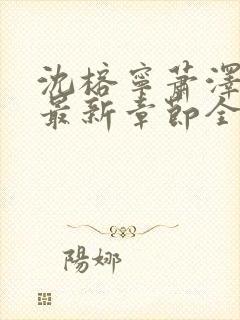 沈榕寧蕭澤
最新章節全
陽娜